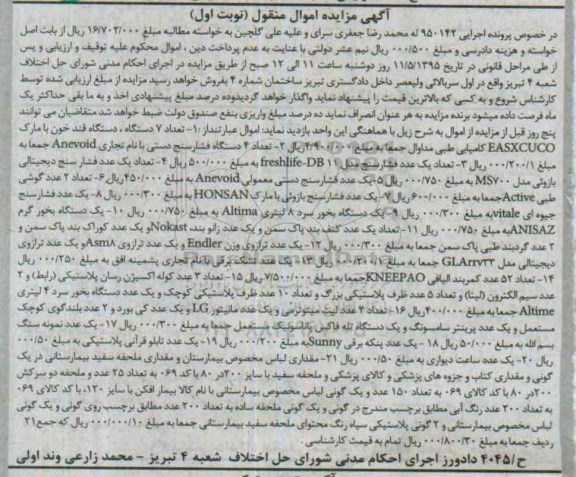 آگهی مزایده اموال منقول (نوبت اول)
در خصوص پرونده اجرایی ۹۵۰۱۴۲ له محمد رضا جعفری سرای و علیه علی گلچین به خواسته مطالبه مبلغ ۱۶/۷۰۲/۰۰۰ ریال از بابت اصل
خواسته و هزینه دادرسی و مبلغ ۰۰۰/۵۰۰ ریال نیم عشر دولتی با عنایت به عدم پرداخت دین ، اموال محکوم علیه توقیف و ارزیابی و پس
از طی مراحل قانونی در تاریخ ۱۱/۵/۱۳۹۵ روز دوشنبه ساعت ۱۱ الی ۱۲ صبح از طریق مزایده در اجرای احکام مدنی شورای حل اختلاف
شعبه ۴ تبریز واقع در اول سربالائی ولیعصر داخل دادگستری تبریز ساختمان شماره ۴ بفروش خواهد رسید مزایده از مبلغ ارزیابی شده توسط
کارشناس شروع و به کسی که بالاترین قیمت را پیشنهاد نماید واگذار خواهد گردیدوده درصد مبلغ پیشنهادی اخذ و به ما بقی حداکثر یک
ماه فرصت داده میشود برنده مزایده به هر عنوان انصراف نماید ده درصد مبلغ واریزی بنفع صندوق دولت ضبط خواهد شد متقاضیان می توانند
پنج روز قبل از مزایده از اموال به شرح زیل با هماهنگی این واحد بازدید نماید: اموال عبارتنداز :۱- تعداد ۷ دستگاه ، دستگاه قند خون با مارک
EASXCUCO کامپلی طبی مداول جمعا به مبلغ ۴/۹۰۰/۰۰۰ ریال ۲- تعداد ۴ دستگاه فشارسنج دستی با نام تجاری Anevoid جمعا به
مبلغ ۰۰۰/۲۰۰/۱ ریال ۳- تعداد یک عدد فشارسنج مدل freshlife-DB۱۱ به مبلغ ۵۰۰/۰۰۰ ریال ۴- تعداد یک عدد فشار سنج دیجیتالی
بازوئی مدل MS۷۰۰ به مبلغ ۰۰۰/۷۵۰ ریال ۵-یک عدد فشارسنج دستی معمولی Anevoid به مبلغ ۴۵۰/۰۰۰ریال۶- تعداد ۲ عدد گوشی
طبی Activeجمعا به مبلغ ۶۰۰/۰۰۰ ریال ۷- یک عدد فشارسنج بازوئی با مارک HONSAN به مبلغ ۰۰۰/۳۰۰ ریال ۸- یک عدد فشارسنج
جیوه ای vitaleبه مبلغ ۰۰۰/۳۰۰ ریال ۹-یک دستگاه بخور سرد ۸ لیتری Altima به مبلغ ۰۰۰/۷۵۰ ریال ۱۰- یک دستگاه بخور گرم
ANISAZبه مبلغ ۰۰۰/۷۵۰ ریال ۱۱- تعداد یک عدد کتف بند پاک سمن و یک عدد زانو بند، Nokastو یک عدد کوراک بند پاک سمن و
۲ عدد گردبند طبی پاک سمن جمعا به مبلغ ۰۰۰/۳۰۰ ریال ۱۲- یک عدد ترازوی وزن Endler و یک عدد ترازوی Asm۸و یک عدد ترازوی
دیجیتالی مدل GLArr۷۳۳ جمعا به مبلغ ۰۰۰/۳۰۰/۱ ریال ۱۳- یک عدد تشک برقی با نام تجاری پشمینه افق به مبلغ ۰۰۰/۲۵۰ ریال
۱۴- تعداد ۵۲ عدد کمربند الیافی KNEEPAOجمعا به مبلغ ۷/۵۰۰/۰۰۰ ریال ۱۵- تعداد ۳ عدد کوله اکسیژن رسان پلاستیکی (رابط) و ۲
عدد سیم الکترون (لیتا) و تعداد ۵ عدد ظرف پلاستیکی بزرگ و تعداد ۱۰ عدد ظرف پلاستیکی کوچک و یک عدد دستگاه بخور سرد ۴ لیتری
Altime جمعا به مبلغ ۴۰۰/۰۰۰ریال ۱۶- تعداد ۳ عدد لیت میتولزمی و یک عدد مانیتور LG و یک عدد کی بورد و ۲ عدد بلندگوی کوچک
مستعمل و یک عدد پرینتر سامسونگ و یک دستگاه تله فاکس پاناسونیک مستعمل جمعا به مبلغ ۰۰۰/۳۰۰ ریال ۱۷- یک عدد نمونه سنگ
بسم الله به مبلغ ۵۰/۰۰۰ ریال ۱۸ - یک عدد پنکه برقی Sunnyبه مبلغ ۰۰۰/۲۰۰ ریال ۱۹- یک عدد تابلو قرآنی پلاستیکی به مبلغ ۰۰۰/۵۰
ریال ۲۰- یک عدد ساعت دیواری به مبلغ ۰۰۰/۵۰ ریال ۲۱- مقداری لباس مخصوص بیمارستان و مقداری ملحفه سفید بیمارستانی در یک
گونی و مقداری کتاب و جزوه های پزشکی و کالای پزشکی و ملحفه سفید با سایز ۲۰۰در ۸۰ با کد ۰۶۹ به تعداد ۲۵ عدد و ملحفه دو سرکش
۲۰۰در ۸۰ با کد کالای ۰۶۹ به تعداد ۱۵۰ عدد و یک گونی لباس مخصوص بیمارستانی با نام کالا بیمار افکن با سایز ۱۲۰، با کد کالای ۰۶۹
به تعداد ۲۰۰ عدد رنگ آبی مطابق برچسب مندرج در گونی و یک گونی ملحفه ساده به تعداد ۲۰۰ عدد مطابق برچسب روی گونی و یک گونی
لباس مخصوص بیمارستانی و ۲ گونی پلاستیکی سیاه رنگ محتوای ملحفه سفید بیمارستانی جمعا به مبلغ ۰۰۰/۰۰۰/۱۰ ریال که جمع۲۱
ردیف جمعا به مبلغ ۰۰۰/۸۰۰/۳۰ ریال تمام به قیمت کارشناسی.
ح/۴۰۴۵ دادورز اجرای احکام مدنی شورای حل اختلاف شعبه ۴ تبریز - محمد زارعی وند اولی